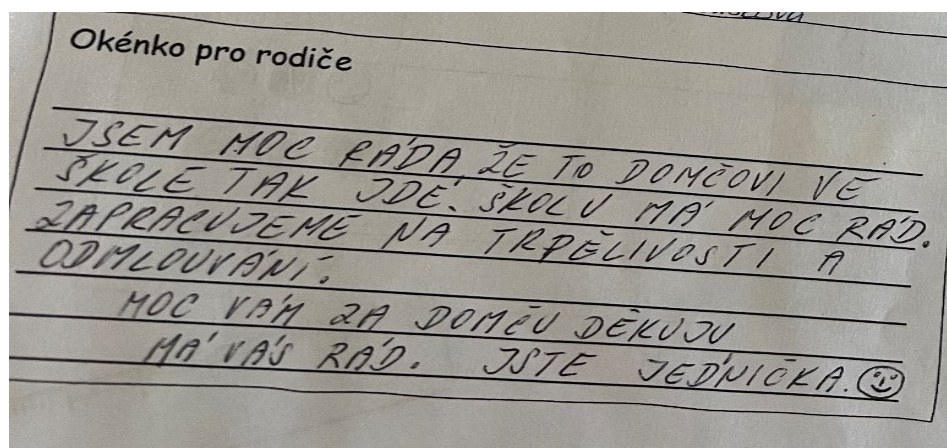 Okénko pro rodiče
JSEM MOC RÁDA, ŽE TO DOMČOVI VE
ŠKOLE TAK JDE. ŠKOLU MÁ MOC RÁD.
ZAPRACUJEME NA TRPĚLIVOSTI A
ODMLOUVÁNÍ.
MOC VÁM ZA DOMČU DĚKUJU
MÁ VÁS RÁD. JSTE JEDNIČKA. ☺